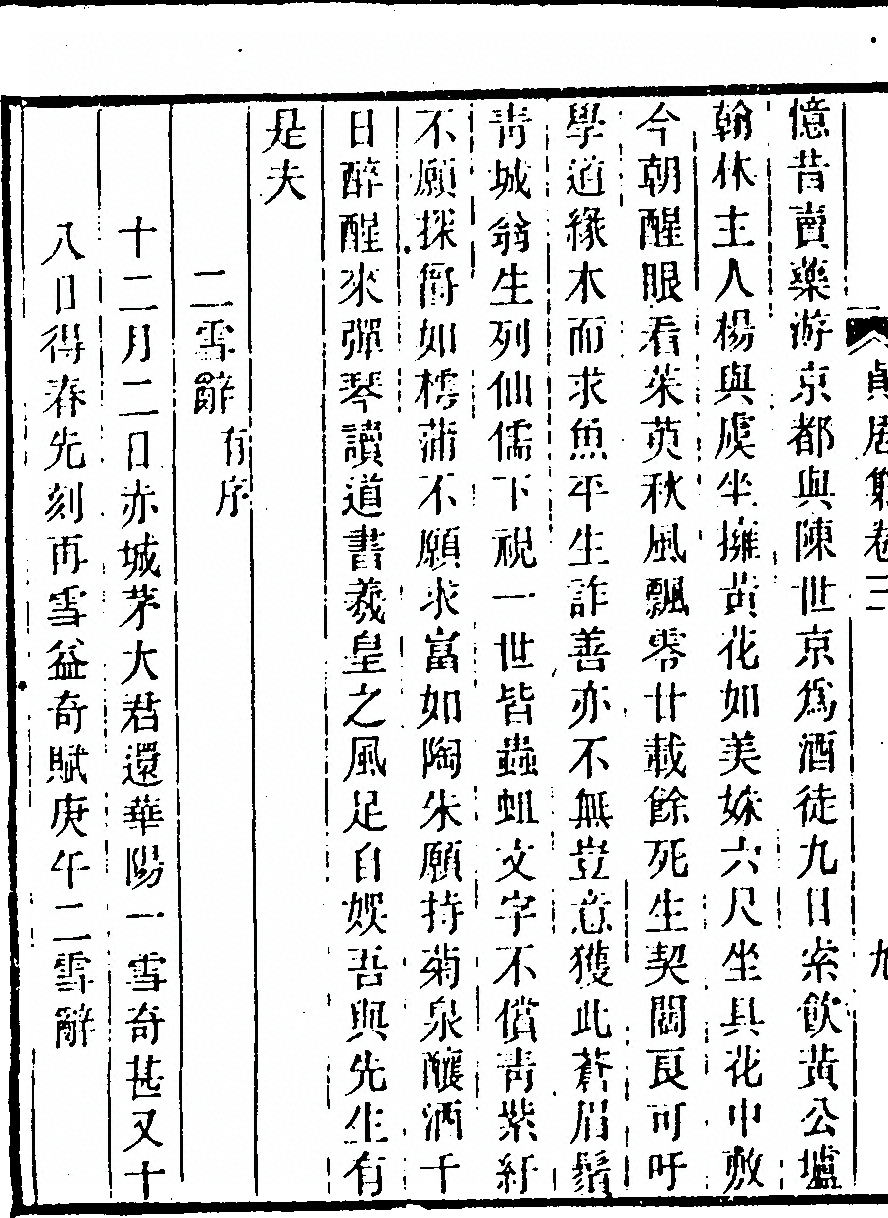 貞居集卷三 九
憶昔賣藥游京都與陳世京爲酒徒九日索飲黃公壚
翰林主人楊與虞坐擁黃花如美姝六尺坐具花中敷
今朝醒眼看茱萸秋風飄零廿載餘死生契闊良可吁
學道緣木而求魚平生詐善亦不無豈意獲此蒼眉鬚
靑城翁生列仙儒下視一世皆蟲蛆文字不償靑紫紆
不願探籌如樗蒲不願求富如陶朱願持菊泉釀酒千
日醉醒來彈琴讀道書羲皇之風足自娛吾與先生有
是夫
二雪辭有序
十二月二日赤城茅大君還華陽一雪奇甚又十
八日得春先刻再雪益奇賦庚午二雪辭